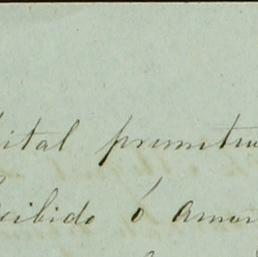 ital primitiv
cibido ó amor